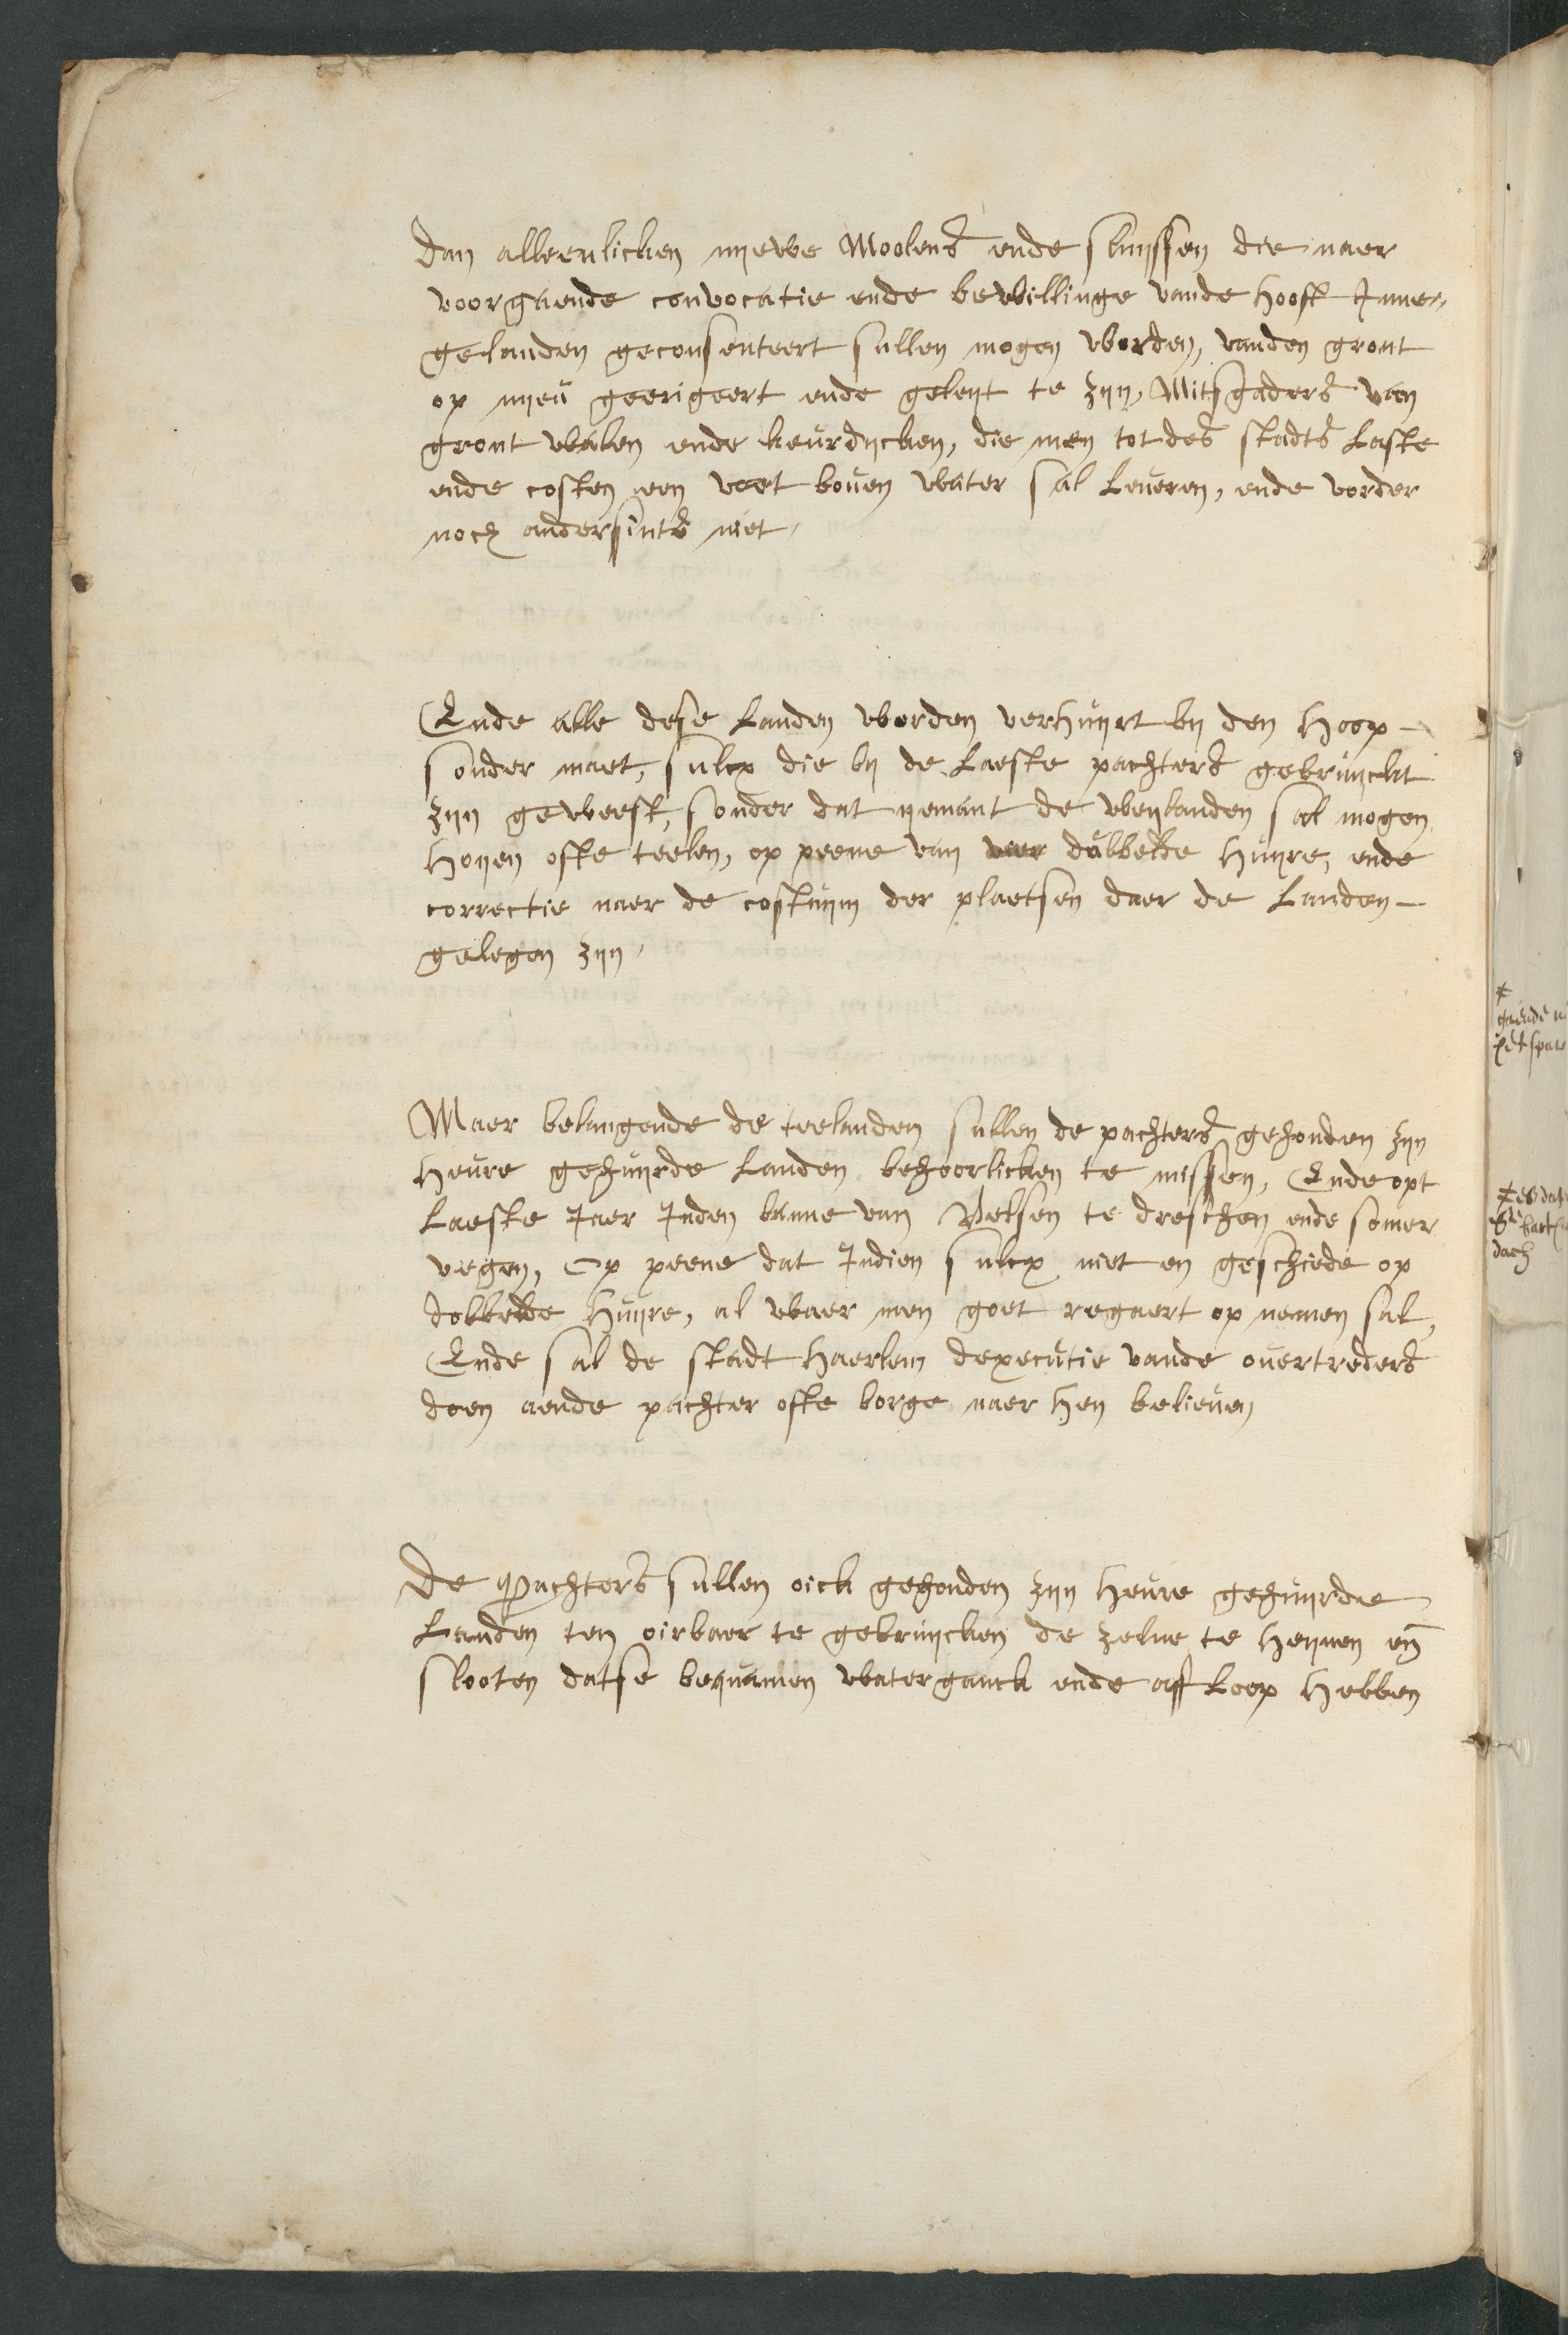 dan alleenlicken nijewe Moolens ende sluijssen die naer
voorgaende convocatie ende bewillinge vande hooft Inne„
gelanden geconsenteert sullen mogen worden, vanden gront
op nijeu geerigeert ende geleijt te zijn, Mitsgaders van
gront walen ende keurdijcken, die men tot des stadts Laste
ende costen een voet boven water sal Leveren, ende vorder
noch andersints niet,
Ende alle dese Landen worden verhuijrt bij den hoop -
sonder maet, sulcx die bij de Laeste pachters gebruijckt
zijn geweest, sonder dat ijemant de weijlanden sal mogen
hoijen ofte teelen, op peene van dubbelde huijre, ende
correctie naer de costuijm der plaetsen daer de Landen -
gelegen zijn,
Maer belangende de teelanden sullen de pachters gehouden zijn
heure gehuijrde Landen behoorlicken te missen, Ende opt
Laeste Jaer Inden banne van Velsen te dresschen ende somer
vegen, Op peene dat Indien sulcx niet en geschiede op
dobbelde huijre, al waer men goet regaert op nemen sal,
Ende sal de stadt haerlem dexecutie vande overtreders
doen aende pachter ofte borge naer hen believen
De Pachters sullen oick gehouden zijn heure gehuijrde
Landen ten oirbaer te gebruijcken de zelve te heijnen en
slooten datse bequamen waterganck ende aff Loop hebben
gaende
dach